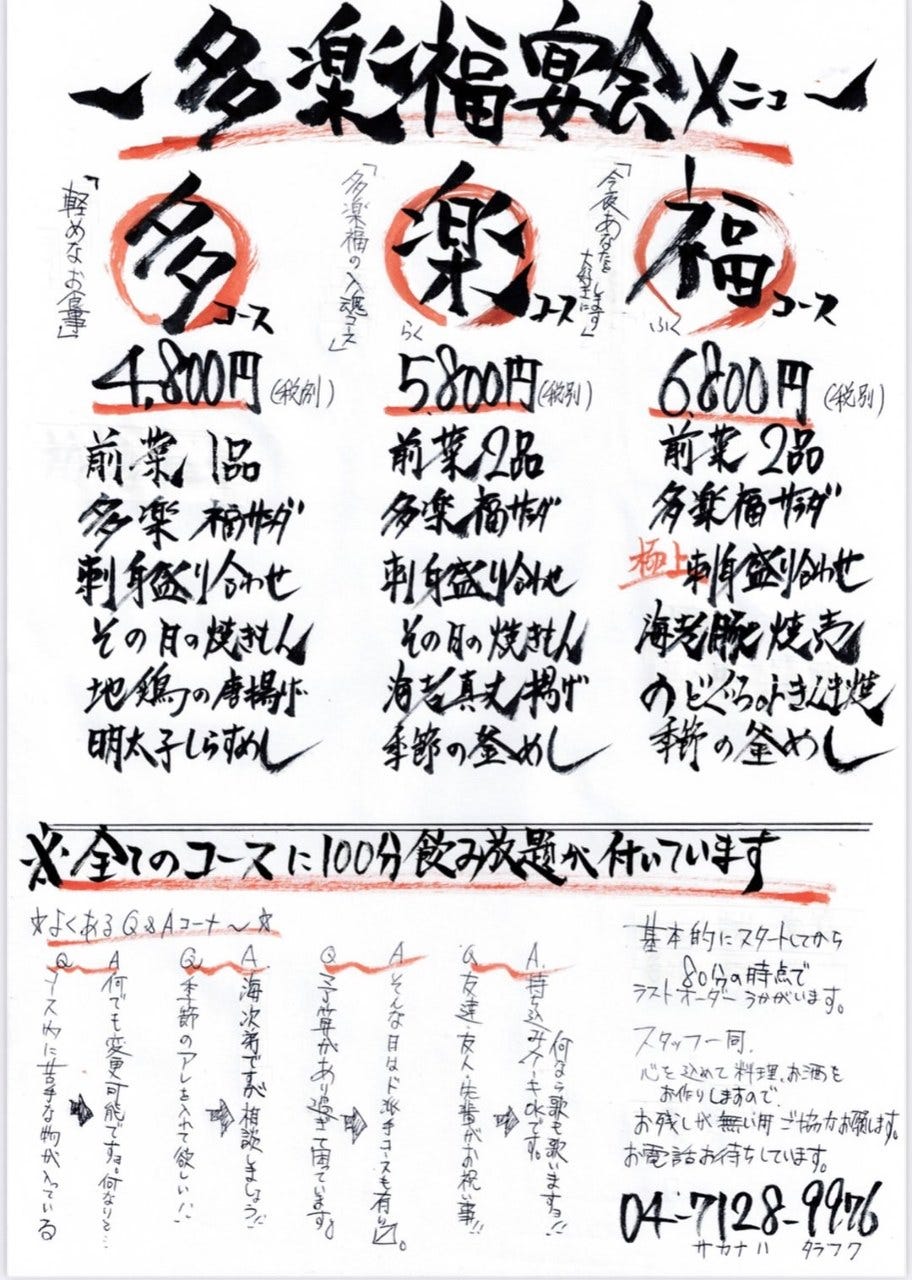 ～多楽福宴会メニュー～
「軽めなお食事」
多コース
4,800円(税別)
前菜1品
多楽福サラダ
刺身盛り合わせ
その日の焼きもん
地鶏の唐揚げ
明太子しらすめし
「多楽福の入魂コース」
楽コース
らく
5,800円(税別)
前菜2品
多楽福サラダ
刺身盛り合わせ
その日の焼きもん
海老真丈揚げ
季節の釜めし
「今夜あなたを
大好きにします」
福コース
ふく
6,800円(税別)
前菜2品
多楽福サラダ
極上刺身盛り合わせ
海老豚焼売
のどぐろ
季節の釜めし
※全てのコースに100分飲み放題が付いています
☆よくあるQ&Aコーナ～☆
Q コース内に苦手な物が入っている
A 何でも変更可能ですョ。何なりと…
Q 季節のアレを入れて欲しい!!
A 海次第ですが相談しましょう!!
Q 予算があり過ぎて困っています。
A そんな日はド派手コースも有り〼。
Q 友達・友人・先輩がお祝い事!!
A. 持ち込みケーキOKです。
何なら歌も歌いますョ!!
基本的にスタートしてから
80分の時点で
ラストオーダーうかがいます。
スタッフ一同、
心を込めて料理、お酒を
お作りしますので、
お残しが無い用ご協力お願します。
お電話お待ちしています。
04-7128-9976
サカナハ タラフク